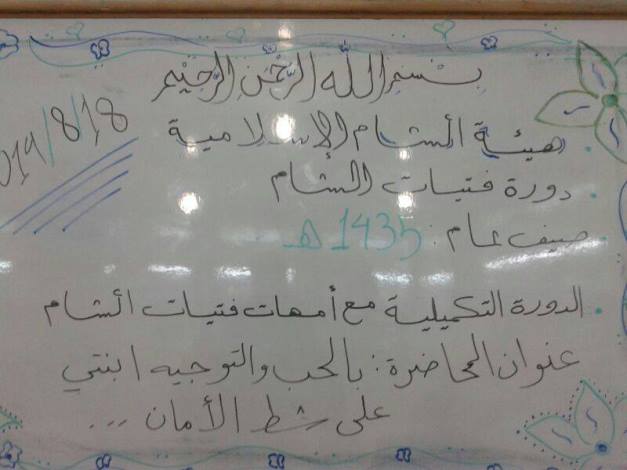 بسم الله الرحمن الرحيم
هيئة الشام الإسلامية
دورة فتيات الشام
صيف عام: 1435 هـ
الدورة التكميلية مع أمهات فتيات الشام
عنوان المحاضرة: بالحب والتوجيه ابنتي
على شط الأمان ...